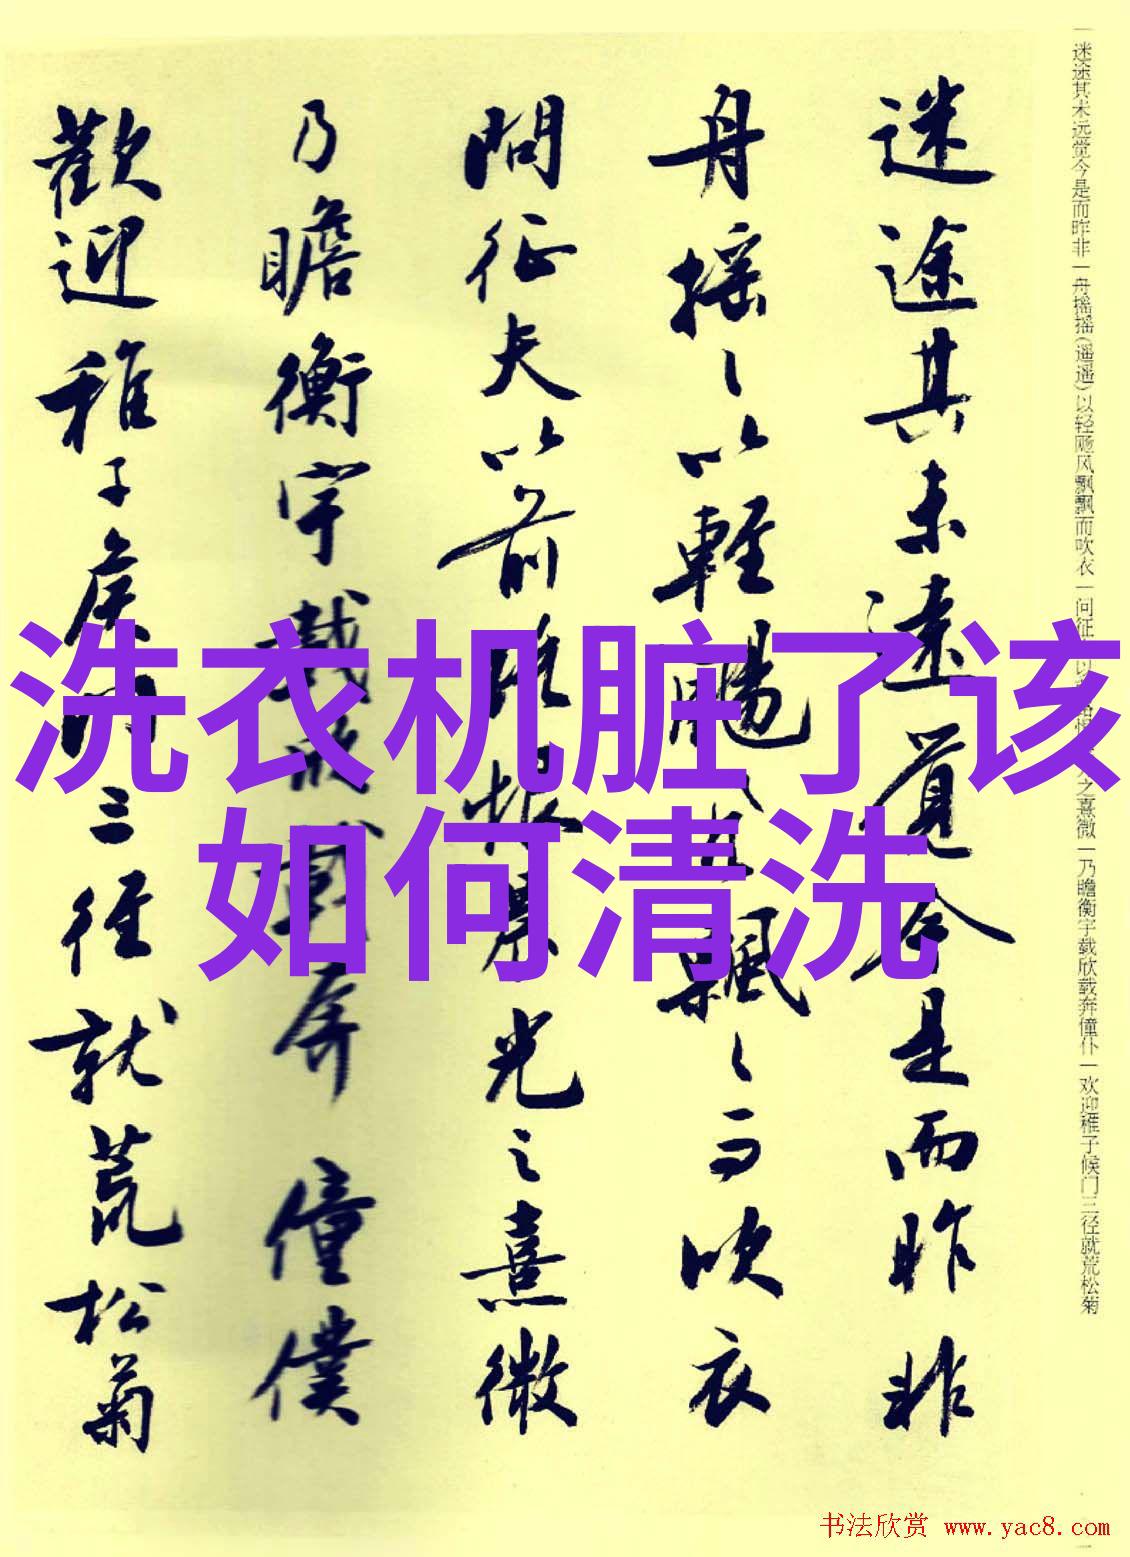 迷途其未远觉今是而昨非
舟摇摇以轻飏风飘飘而吹衣
问征夫以前路恨晨光之熹微
乃瞻衡宇载欣载奔僮仆
欢迎稚子候门三径就荒松菊
洗衣机脏了该
如何清洗
迷途其未远觉今是而昨非一舟摇摇(遥遥)以轻飏风飘飘而吹衣一问征
之熹微一乃瞻衡宇载欣载奔僮仆一欢迎稚子候门三径就荒松菊
书法欣赏 www.yac8.com